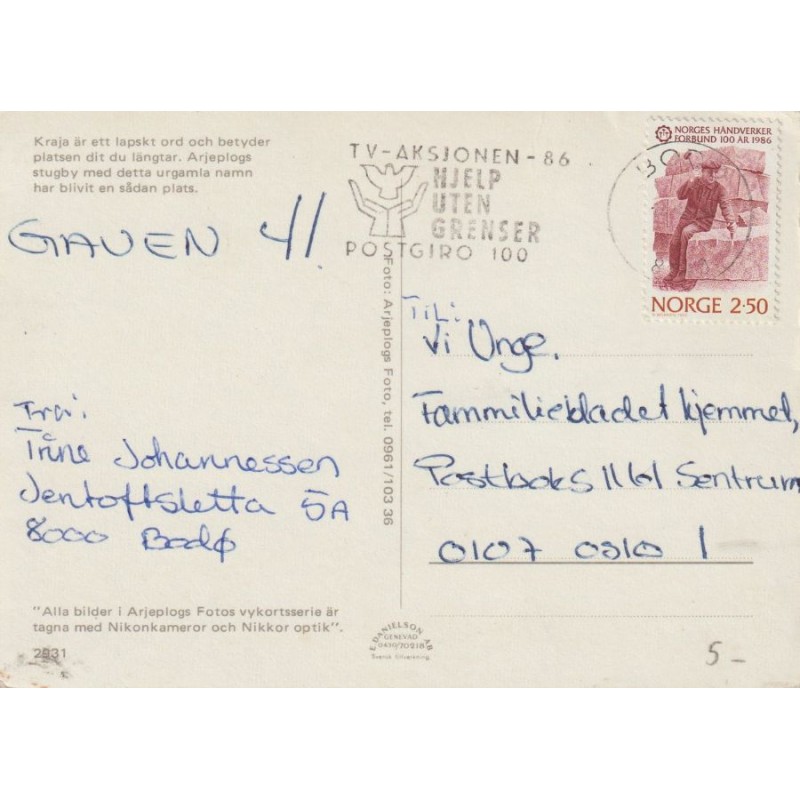 Kraja är ett lapskt ord och betyder
platsen dit du längtar. Arjeplogs
stugby med detta urgamla namn
har blivit en sådan plats.
GAVEN 41.
Fra:
Trine Johannessen
Jentoftsletta 5A
8000 Bodø
"Alla bilder i Arjeplogs Fotos vykortsserie är
tagna med Nikonkameror och Nikkor optik".
2931
TV-AKSJONEN-86
HJELP
UTEN
GRENSER
POSTGIRO 100
Foto: Arjeplogs Foto, tel. 0961/103 36
E. DANIELSON AB
GENEVAD
0430/70218
Svensk tillverkning.
NORGES HÅNDVERKER
FORBUND 100 ÅR 1986
NORGE 2·50
BOD
8
TiL:
Vi Unge,
Fammiliebladet hjemmet,
Postboks 1161 Sentrum
0107 OSlO 1
5-